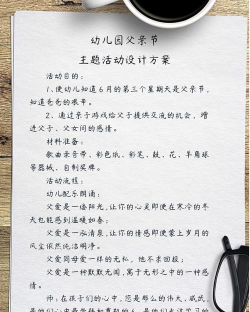 幼儿园父亲节
主题活动设计方案
活动目的：
1、使幼儿知道6月的第三个星期天是父亲节，
知道爸爸的艰辛。
2、通过亲子游戏给父子提供交流的机会，增
进父子、父女间的感情。
材料准备：
歌曲录音带、彩色纸、彩笔、鼓、花、羊角球
等器械、自制奖牌。
活动流程：
幼儿配乐朗诵：
父爱是一缕阳光，让你的心灵即使在寒冷的冬
天也能感到温暖如春；
父爱是一泓清泉，让你的情感即使蒙上岁月的
风尘依然纯洁明净。
父爱同母爱一样的无私，他不求回报；
父爱是一种默默无闻，寓于无形之中的一种感
情。
师：在孩子们的心中，您是那么的伟大，威武，